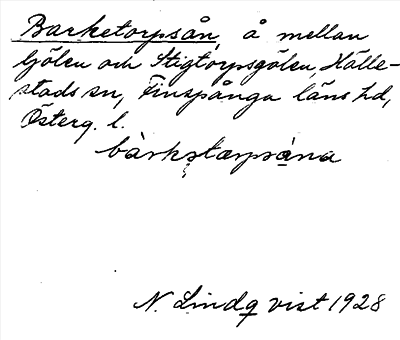 Barketorpsån, å mellan
Gölen och Stigtorpsgölen, Hälle-
stads sn, Finspånga läns hd,
Österg. l.
bàrkstærpsána
N. Lindqvist 1928